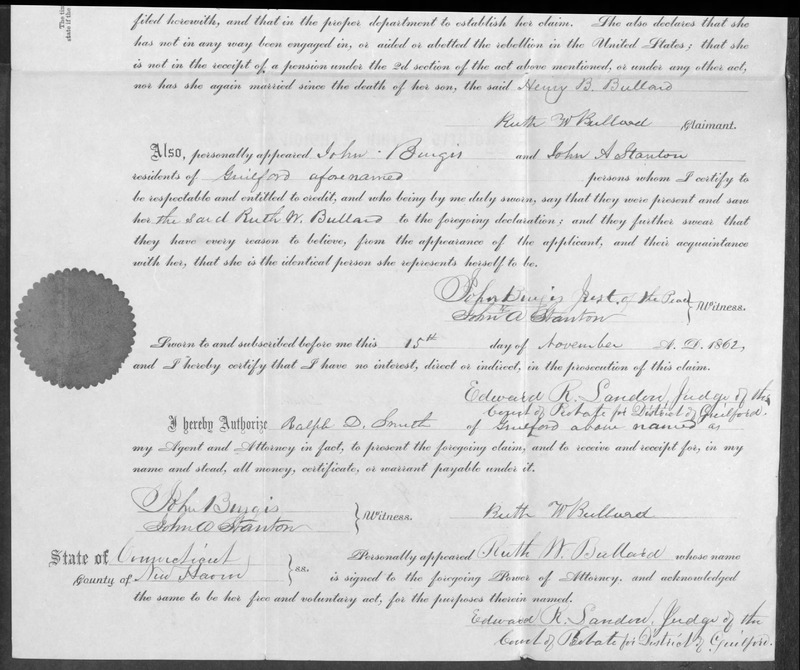 filed herewith, and that in the proper department to establish her claim. She also declares that she
has not in any way been engaged in, or aided or abetted the rebellion in the United States; that she
is not in the receipt of a pension under the 2d section of the act above mentioned, or under any other act,
nor has she again married since the death of her son, the said Henry B. Bullard
Ruth W Bullard Claimant.
Also, personally appeared John Burgis and John A Stanton
residents of Guilford aforenamed persons whom I certify to
be respectable and entitled to credit, and who being by me duly sworn, say that they were present and saw
her the said Ruth W. Bullard to the foregoing declaration; and they further swear that
they have every reason to believe, from the appearance of the applicant, and their acquaintance
with her, that she is the identical person she represents herself to be.
John Burgis Just. of the Peace
John A Stanton } Witness.
Sworn to and subscribed before me this 15th day of November A. D. 1862,
and I hereby certify that I have no interest, direct or indirect, in the prosecution of this claim.
Edward R. Landon, Judge of the
Court of Probate for District of Guilford.
I hereby Authorize Ralph D. Smith of Guilford above named as
my Agent and Attorney in fact, to present the foregoing claim, and to receive and receipt for, in my
name and stead, all money, certificate, or warrant payable under it.
John Burgis
John A Stanton } Witness. Ruth W Bullard
State of Connecticut
County of New Haven } ss. Personally appeared Ruth W. Bullard whose name
is signed to the foregoing Power of Attorney. and acknowledged
the same to be her free and voluntary act, for the purposes therein named.
Edward R. Landon, Judge of the
Court of Probate for District of Guilford.